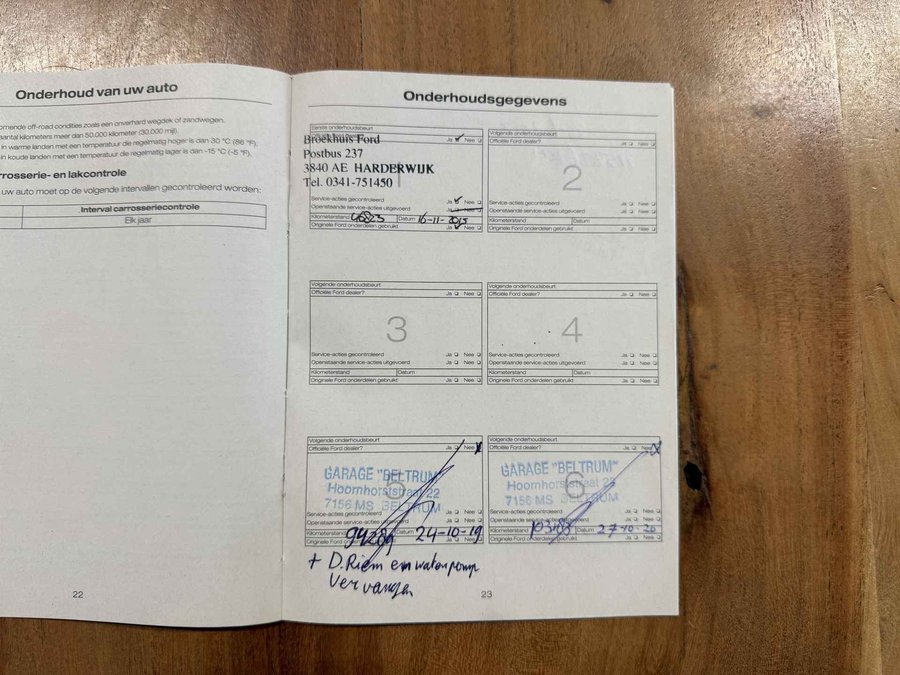 Onderhoud van uw auto
omende off-road condities zoals een onverhard wegdek of zandwegen.
antal kilometers meer dan 50.000 kilometer (30.000 mijl).
in warme landen met een temperatuur die regelmatig hoger is dan 30 °C (86 °F).
in koude landen met een temperatuur die regelmatig lager is dan -15 °C (-5 °F).
rrosserie- en lakcontrole
uw auto moet op de volgende intervallen gecontroleerd worden:
Interval carrosseriecontrole
Elk jaar
22
Onderhoudsgegevens
Eerste onderhoudsbeurt
Ja Nee
Broekhuis Ford
Postbus 237
3840 AE HARDERWIJK
Tel. 0341-751450
1
Service-acties gecontroleerd Ja Nee
Openstaande service-acties uitgevoerd Ja Nee
Kilometerstand Datum 16-11-2015
Originele Ford onderdelen gebruikt Ja Nee
Volgende onderhoudsbeurt
Officiële Ford dealer? Ja Nee
2
Service-acties gecontroleerd Ja Nee
Openstaande service-acties uitgevoerd Ja Nee
Kilometerstand Datum
Originele Ford onderdelen gebruikt Ja Nee
Volgende onderhoudsbeurt
Officiële Ford dealer? Ja Nee
3
Service-acties gecontroleerd Ja Nee
Openstaande service-acties uitgevoerd Ja Nee
Kilometerstand Datum
Originele Ford onderdelen gebruikt Ja Nee
Volgende onderhoudsbeurt
Officiële Ford dealer? Ja Nee
4
Service-acties gecontroleerd Ja Nee
Openstaande service-acties uitgevoerd Ja Nee
Kilometerstand Datum
Originele Ford onderdelen gebruikt Ja Nee
Volgende onderhoudsbeurt
Officiële Ford dealer? Ja Nee
GARAGE "BELTRUM"
5
Hoornhorststraat 22
7156 MS BELTRUM
Service-acties gecontroleerd Ja Nee
Openstaande service-acties uitgevoerd Ja Nee
Kilometerstand Datum 24-10-19
Originele Ford onderdelen gebruikt Ja Nee
+ D.Riem en waterpomp
Vervangen
Volgende onderhoudsbeurt
Officiële Ford dealer? Ja Nee
GARAGE "BELTRUM"
6
Hoornhorststraat 22
7156 MS BELTRUM
Service-acties gecontroleerd Ja Nee
Openstaande service-acties uitgevoerd Ja Nee
Kilometerstand Datum 27-10-20
Originele Ford onderdelen gebruikt Ja Nee
23